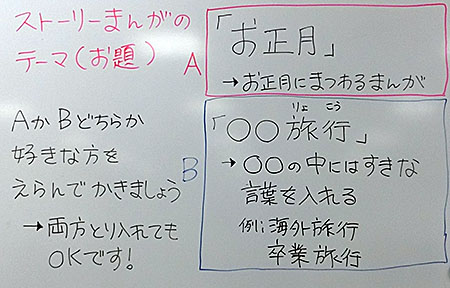 ストーリーまんがの
テーマ(お題)
A
「お正月」
→お正月にまつわるまんが
AかBどちらか
好きな方を
えらんでかきましょう
→両方とり入れても
OKです!
B
りょこう
「〇〇旅行」
→〇〇の中にはすきな
言葉を入れる
例:海外旅行
卒業旅行